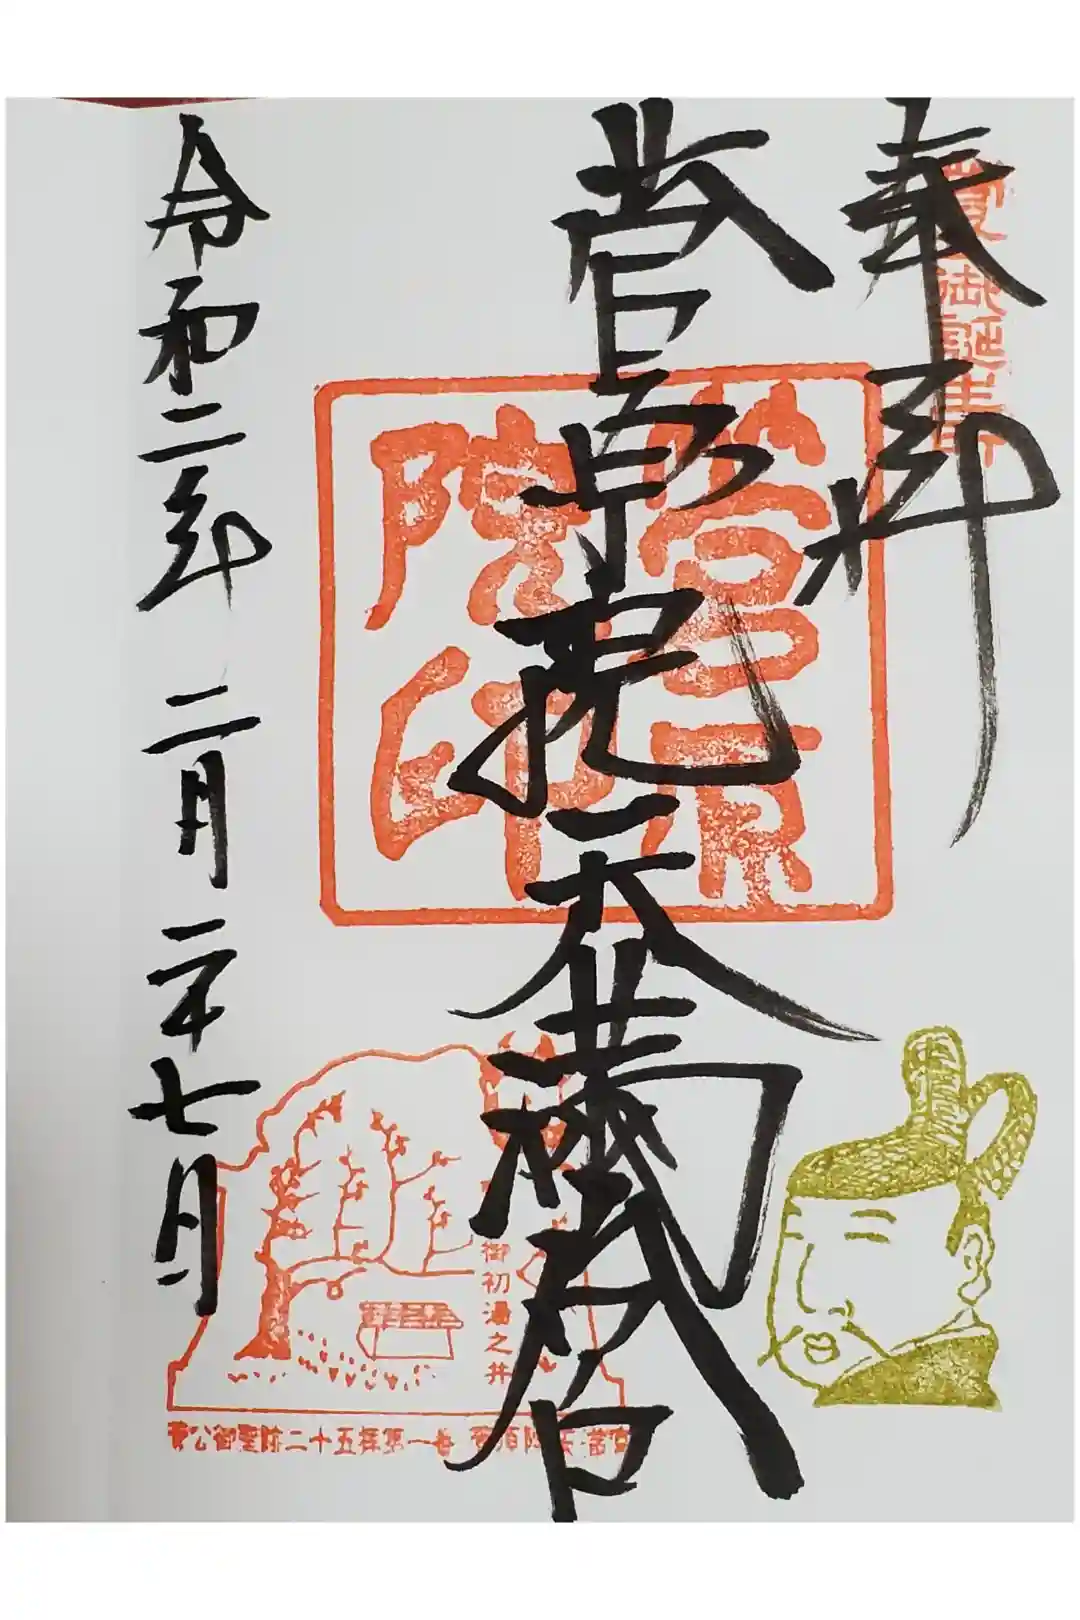 奉拝
菅公御誕生所
菅原院天満宮
菅原院印
令和二年 二月二十七日
御初湯之井
菅公御霊跡二十五拝第一番 菅原院天満宮